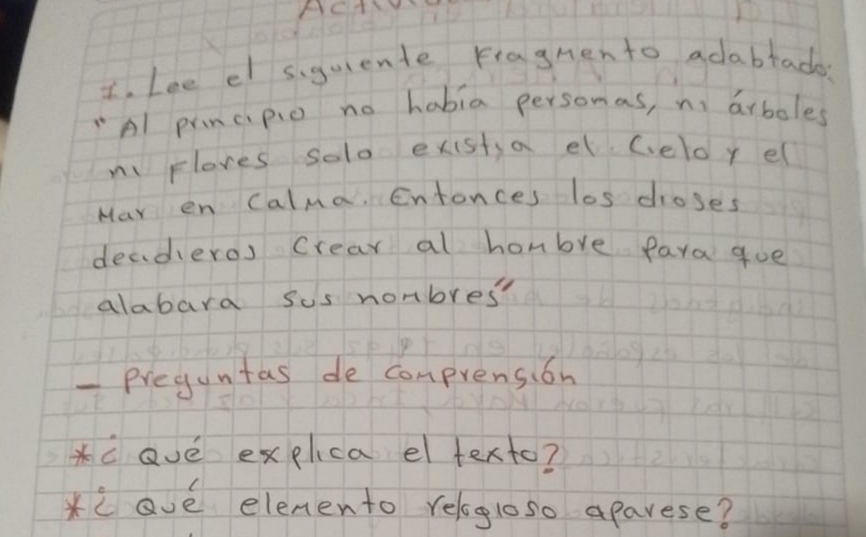 1. Lee el siguiente Fragmento adabtado:
"Al principio no había personas, ni árboles
ni Flores solo existia el Cielo y el
Mar en Calma. Entonces los dioses
decidieros Crear al hombre Para que
alabara sus nombres"
- Preguntas de Comprensión
*¿Qué explica el texto?
*¿Qué elemento religioso aparese?